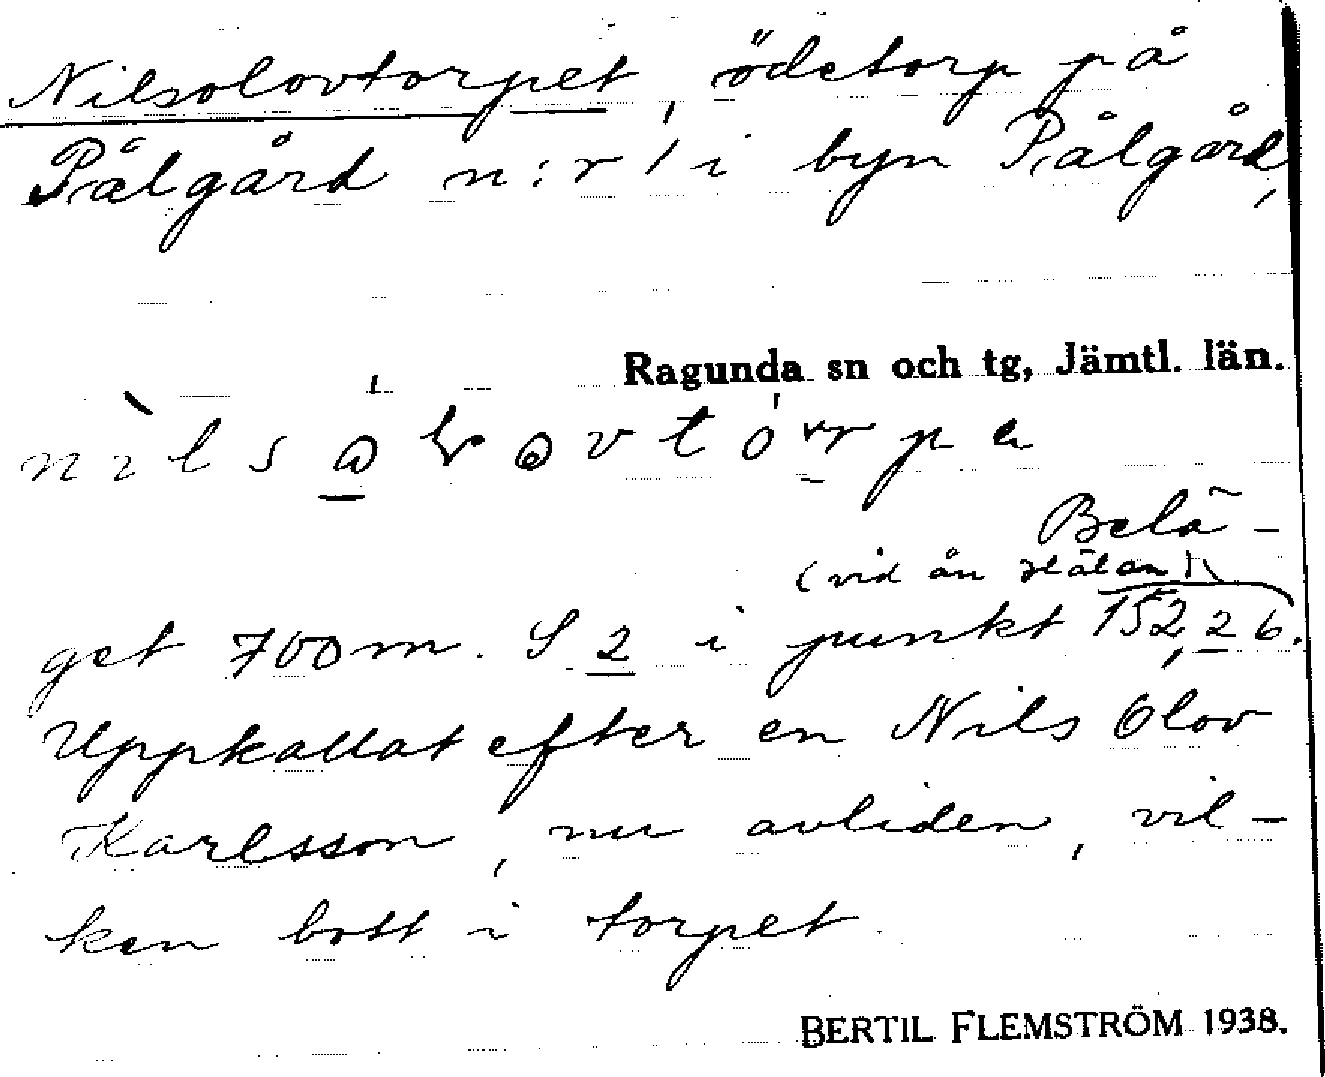 Nilsolovtorpet, ödetorp på
Pålgård n:r 1 i byn Pålgård,
Ragunda sn och tg, Jämtl. län.
Belä-
(vid ån
get 700 m. S 2 i punkt 152,26.
Uppkallat efter en Nils Olov
Karlsson, nu avliden, vil-
ken bott i torpet.
BERTIL FLEMSTRÖM 1938.